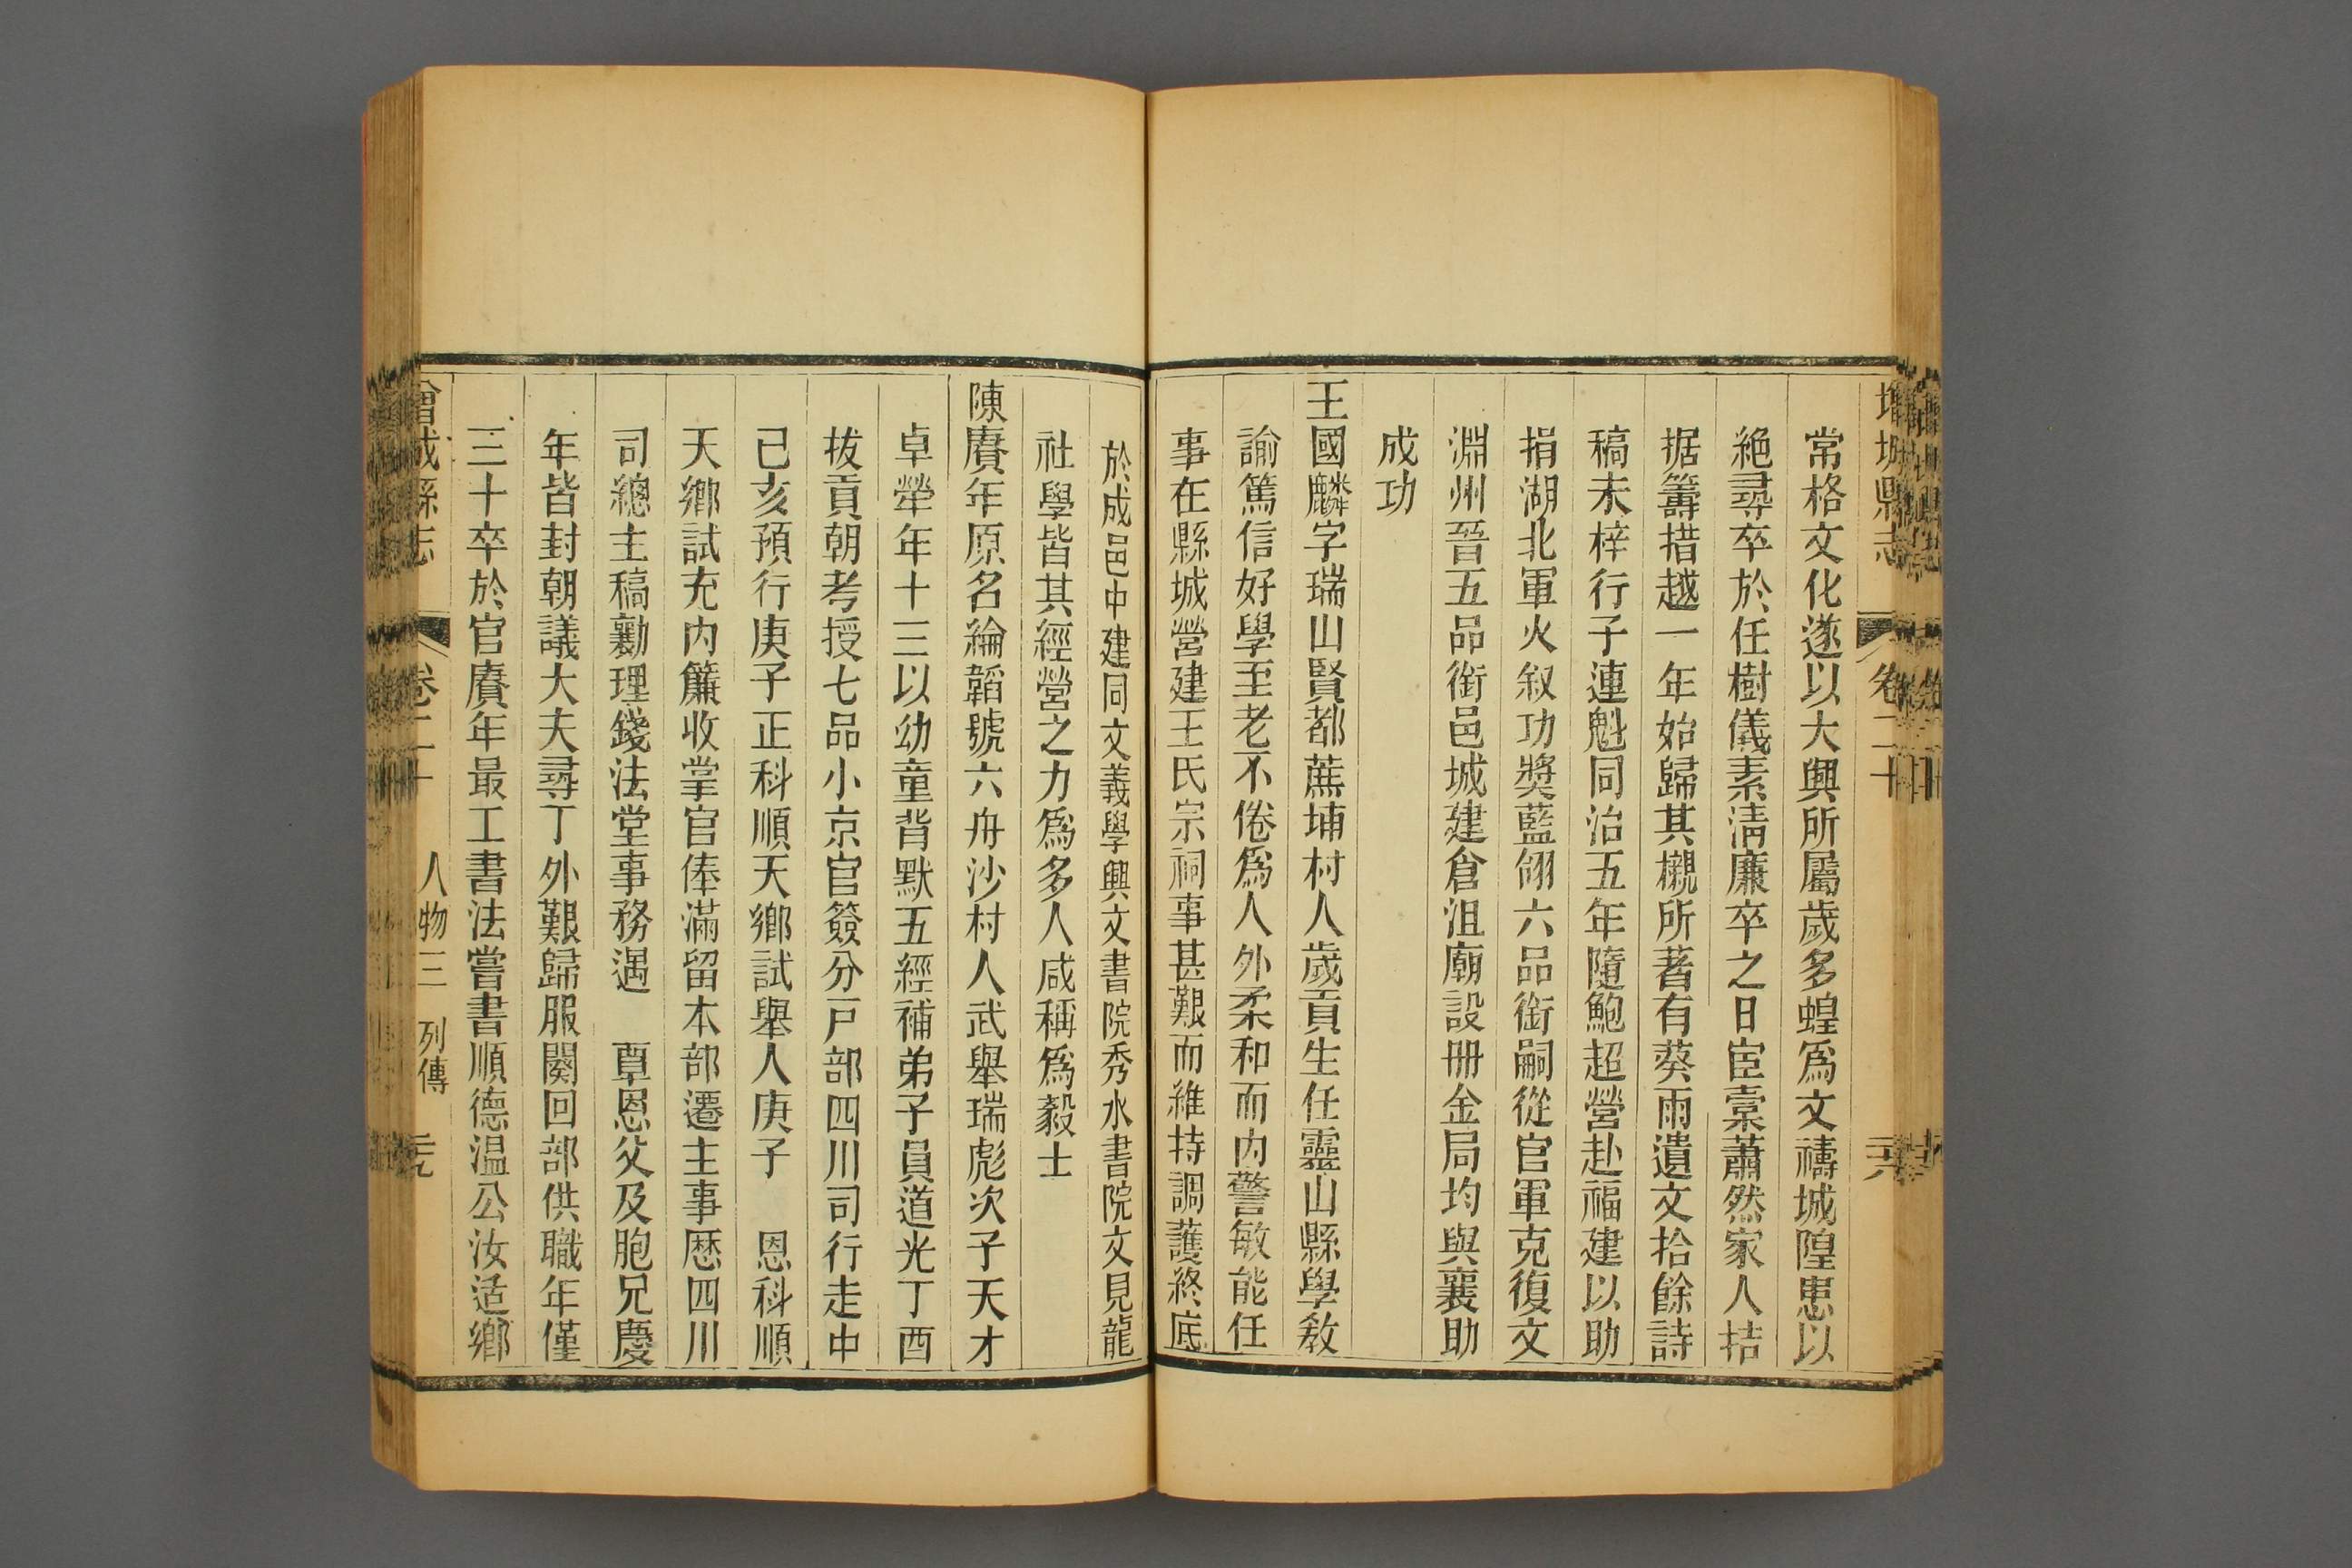 增城縣志
卷二十
常格文化遂以大興所屬歲多蝗爲文禱城隍患以
絕尋卒於任樹儀素淸廉卒之日宦橐蕭然家人拮
据籌措越一年始歸其櫬所著有葵雨遺文拾餘詩
稿未梓行子連魁同治五年隨鮑超營赴福建以助
捐湖北軍火叙功獎藍翎六品銜嗣從官軍克復文
淵州晉五品銜邑城建倉沮廟設冊金局均與襄助
成功
王國麟字瑞山賢都蔗埔村人歲貢生任靈山縣學敎
諭篤信好學至老不倦爲人外柔和而内警敏能任
事在縣城營建王氏宗祠事甚艱而維持調護終底
於成邑中建同文義學興文書院秀水書院文見龍
社學皆其經營之力爲多人咸稱爲毅士
陳賡年原名綸韜號六舟沙村人武舉瑞彪次子天才
卓犖年十三以幼童背默五經補弟子員道光丁酉
拔貢朝考授七品小京官簽分戸部四川司行走中
己亥預行庚子正科順天鄉試舉人庚子　恩科順
天鄉試充内簾收掌官俸滿留本部遷主事歷四川
司總主稿勷理錢法堂事務遇　覃恩父及胞兄慶
年皆封朝議大夫尋丁外艱歸服闋回部供職年僅
三十卒於官賡年最工書法嘗書順德温公汝适鄉
曾城縣志
卷二十
人物三　列傳